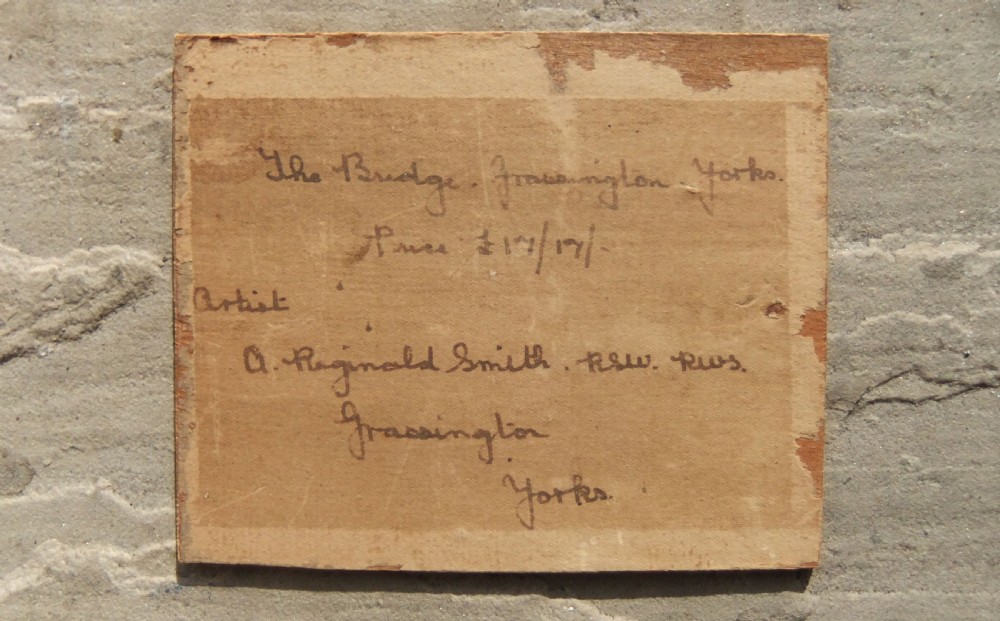 The Bridge. Grassington. Yorks.
Price £17/17/-
Artist
A. Reginald Smith. RSW. RWS.
Grassington
Yorks.